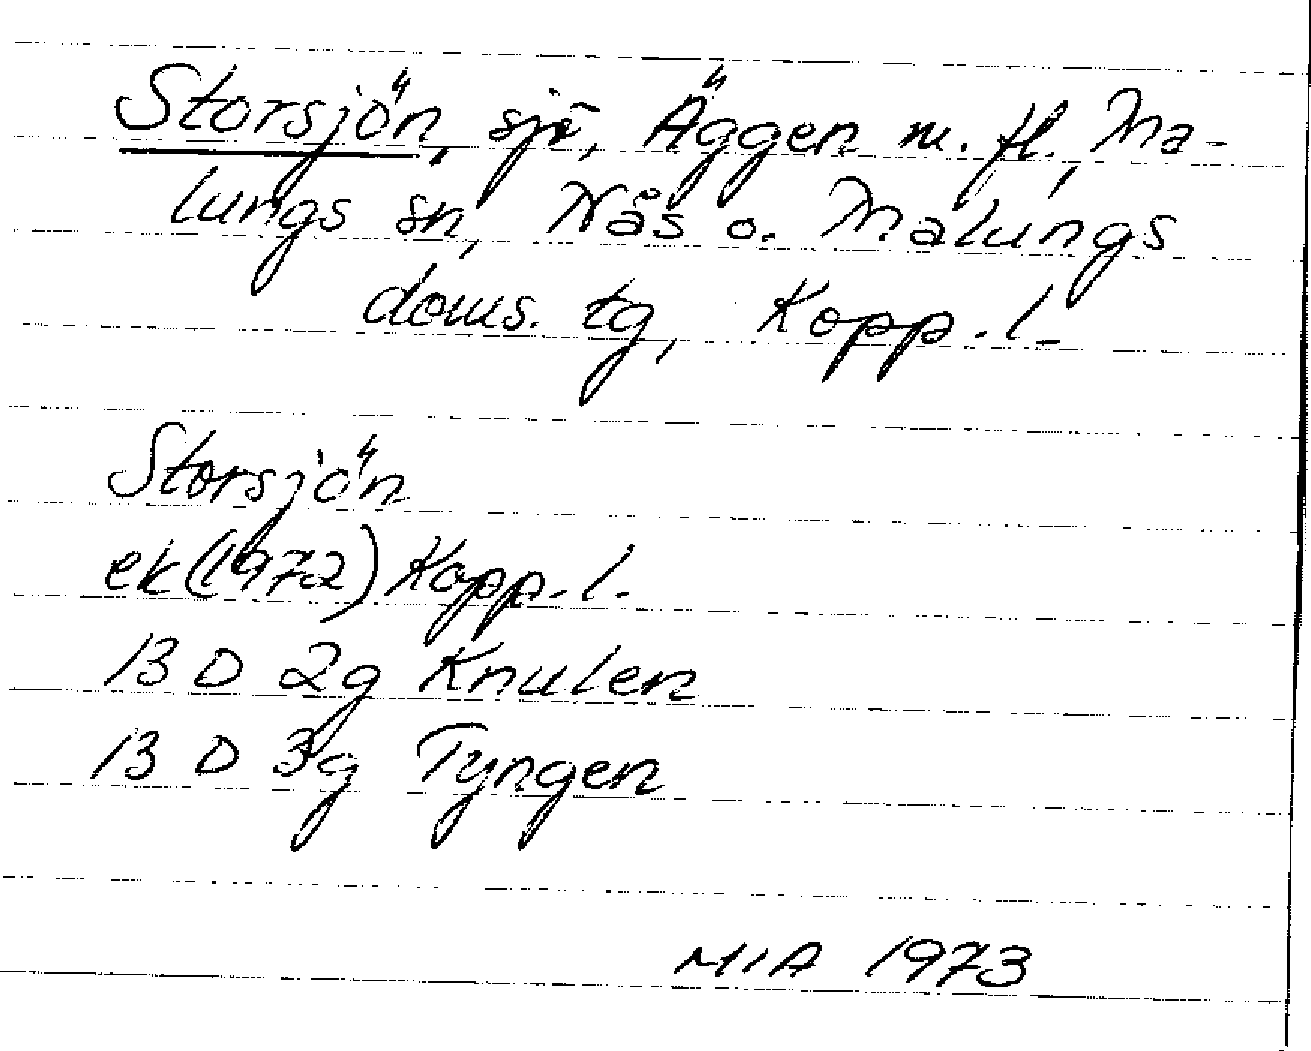 Storsjön, sjö, Äggen m. fl., Ma-
lungs sn, Nås o. Malungs
doms. tg, Kopp. l.
Storsjön
ek (1972) Kopp. l.
13 D 2g Knulen
13 D 3g Tyngen
MIA 1973